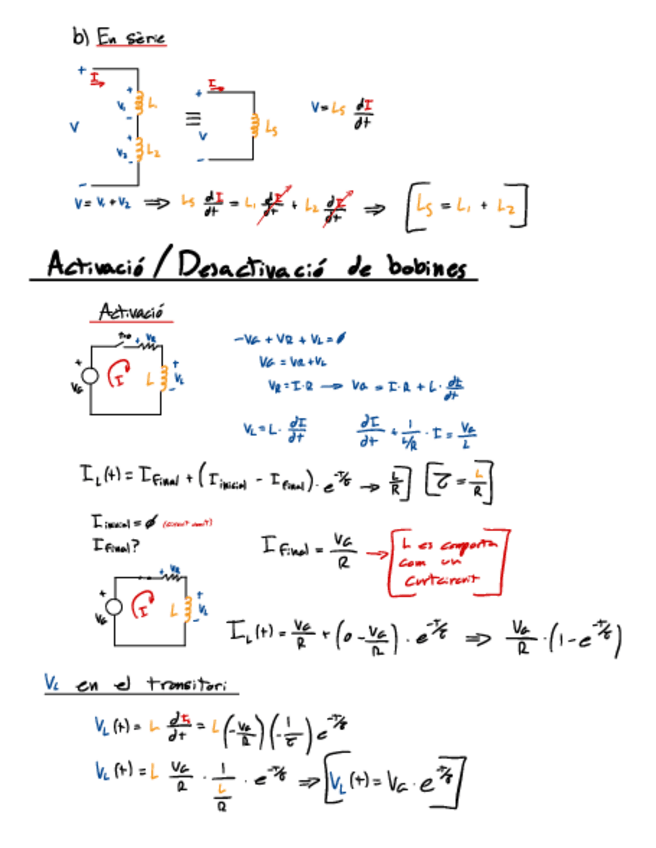 b) En sèrie
+ I + I
V V₁ L₁ + - ≡ V L_S V = L_S dI/dt
V₂ L₂ + -
- -
V = V₁ + V₂ ⟹ L_S dI/dt = L₁ dI/dt + L₂ dI/dt ⟹ [L_S = L₁ + L₂]
Activació / Desactivació de bobines
Activació
t=0 + V_R
+ V_G I L + V_L -
-V_G + V_R + V_L = ∅
V_G = V_R + V_L
V_R = I·R → V_G = I·R + L· dI/dt
V_L = L· dI/dt dI/dt + 1/(L/R) · I = V_G/L
I_L(t) = I_final + (I_inicial - I_final)·e^(-t/τ) → L/R [τ = L/R]
I_inicial = ∅
I_final?
I_final = V_G/R → [L es comporta
com un
curtcircuit]
+ V_R
+ V_G I L + V_L -
I_L(t) = V_G/R + (0 - V_G/R)·e^(-t/τ) ⟹ V_G/R · (1 - e^(-t/τ))
V_L en el transitori
V_L(t) = L dI_L/dt = L (-V_G/R)(-1/τ) e^(-t/τ)
V_L(t) = L V_G/R · 1/(L/R) · e^(-t/τ) ⟹ [V_L(t) = V_G · e^(-t/τ)]